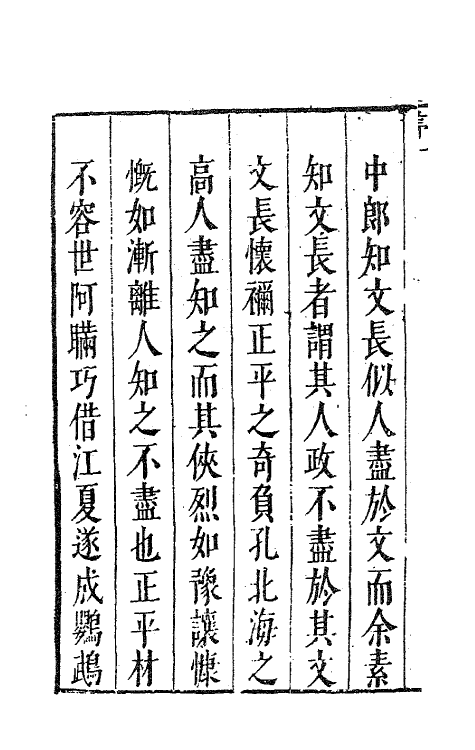 中郎知文長似人盡於文而余素
知文長者謂其人政不盡於其文
文長懷禰正平之奇負孔北海之
高人盡知之而其俠烈如豫讓慷
慨如漸離人知之不盡也正平材
不容世阿瞞巧借江夏遂成鸚鵡